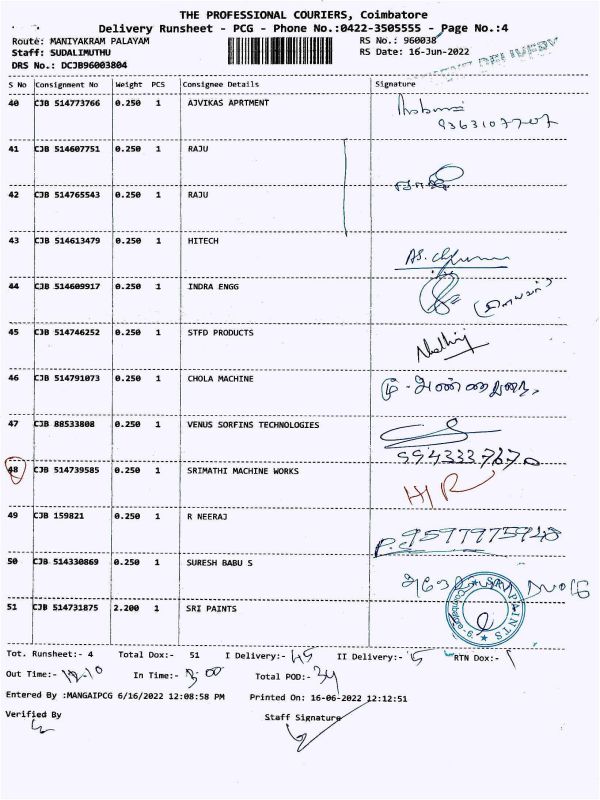 THE PROFESSIONAL COURIERS, Coimbatore
Delivery Runsheet - PCG - Phone No.:0422-3505555 - Page No.:4
Route: MANIYAKRAM PALAYAM RS No.: 960038
Staff: SUDALIMUTHU RS Date: 16-Jun-2022
DRS No.: DCJB96003804 DELIVERY
S No Consignment No Weight PCS Consignee Details Signature
40 CJB 514773766 0.250 1 AJVIKAS APRTMENT
9363107707
41 CJB 514607751 0.250 1 RAJU
42 CJB 514765543 0.250 1 RAJU
43 CJB 514613479 0.250 1 HITECH
44 CJB 514609917 0.250 1 INDRA ENGG
45 CJB 514746252 0.250 1 STFD PRODUCTS
46 CJB 514791073 0.250 1 CHOLA MACHINE
47 CJB 88533808 0.250 1 VENUS SORFINS TECHNOLOGIES
48 CJB 514739585 0.250 1 SRIMATHI MACHINE WORKS H/R
49 CJB 159821 0.250 1 R NEERAJ
50 CJB 514330869 0.250 1 SURESH BABU S
51 CJB 514731875 2.200 1 SRI PAINTS
SRI PAINTS
Tot. Runsheet:- 4 Total Dox:- 51 I Delivery:- 45 II Delivery:- 5 RTN Dox:- 1
Out Time:- 12.10 In Time:- 3.00 Total POD:- 34
Entered By :MANGAIPCG 6/16/2022 12:08:58 PM Printed On: 16-06-2022 12:12:51
Verified By Staff Signature